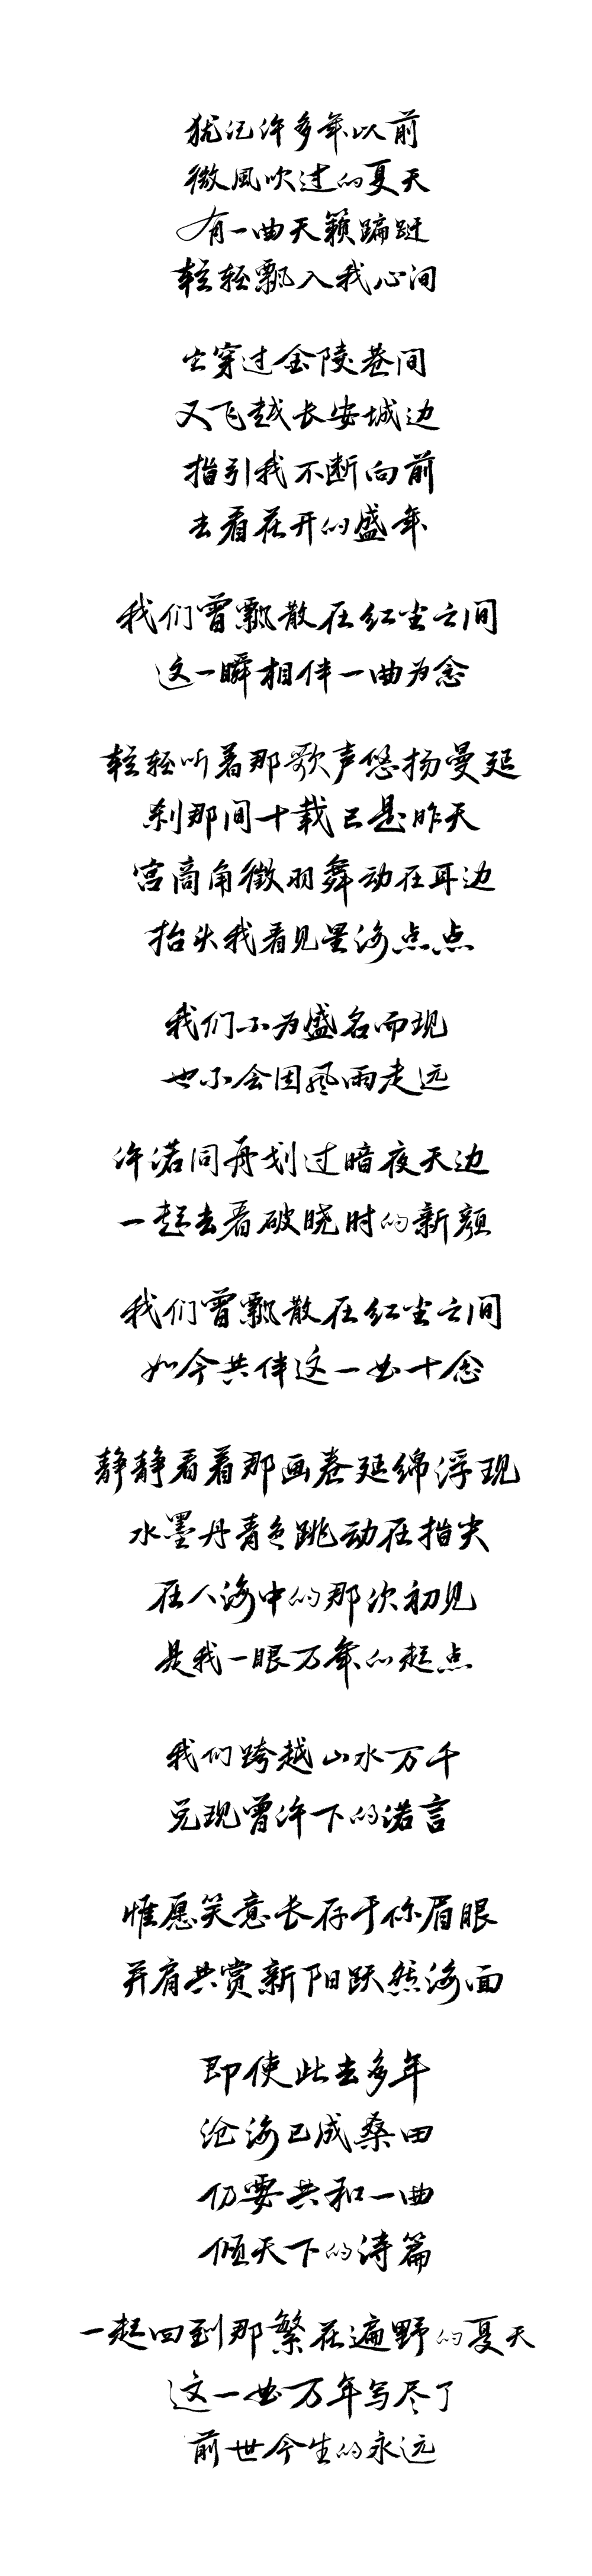 犹记许多年以前
微風吹过的夏天
有一曲天籁蹁跹
轻轻飘入我心间
它穿过金陵巷间
又飞越长安城边
指引我不断向前
去看花开的盛年
我们曾飘散在红尘云间
这一瞬相伴一曲为念
轻轻听着那歌声悠扬曼延
刹那间十载已是昨天
宫商角徵羽舞动在耳边
抬头我看见星海点点
我们不为盛名而现
也不会因風雨走远
许诺同舟划过暗夜天边
一起去看破晓时的新颜
我们曾飘散在红尘云间
如今共伴这一曲十念
静静看着那画卷延绵浮现
水墨丹青色跳动在指尖
在人海中的那次初见
是我一眼万年的起点
我们跨越山水万千
兑现曾许下的诺言
惟愿笑意长存于你眉眼
并肩共赏新阳跃然海面
即使此去多年
沧海已成桑田
仍要共和一曲
倾天下的诗篇
一起回到那繁花遍野的夏天
这一曲万年写尽了
前世今生的永远